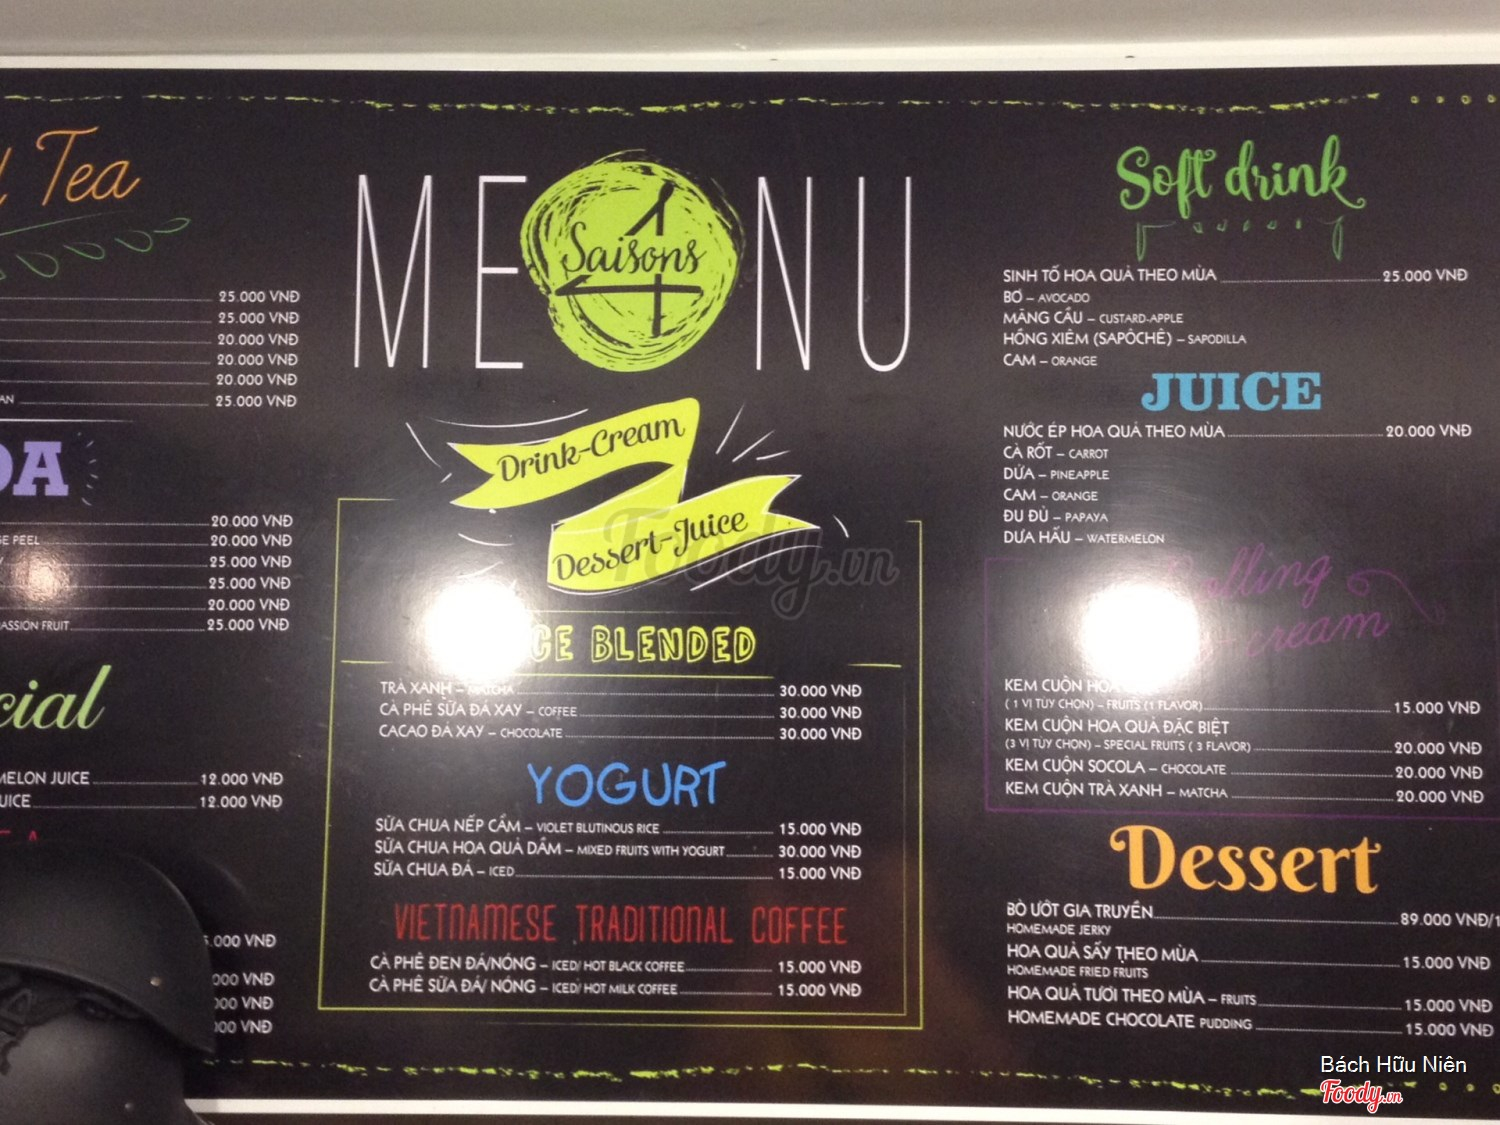 Tea
25.000 VNĐ
25.000 VNĐ
20.000 VNĐ
20.000 VNĐ
20.000 VNĐ
25.000 VNĐ
20.000 VNĐ
PEEL 20.000 VNĐ
25.000 VNĐ
25.000 VNĐ
20.000 VNĐ
FRUIT 25.000 VNĐ
JUICE 12.000 VNĐ
12.000 VNĐ
VNĐ
VNĐ
VNĐ
VNĐ
MENU
4 Saisons
Drink-Cream
Dessert-Juice
BLENDED
TRÀ XANH – MATCHA 30.000 VNĐ
CÀ PHÊ SỮA ĐÁ XAY – COFFEE 30.000 VNĐ
CACAO ĐÁ XAY – CHOCOLATE 30.000 VNĐ
YOGURT
SỮA CHUA NẾP CẨM – VIOLET BLUTINOUS RICE 15.000 VNĐ
SỮA CHUA HOA QUẢ DẦM – MIXED FRUITS WITH YOGURT 30.000 VNĐ
SỮA CHUA ĐÁ – ICED 15.000 VNĐ
VIETNAMESE TRADITIONAL COFFEE
CÀ PHÊ ĐEN ĐÁ/NÓNG – ICED/ HOT BLACK COFFEE 15.000 VNĐ
CÀ PHÊ SỮA ĐÁ/ NÓNG – ICED/ HOT MILK COFFEE 15.000 VNĐ
Soft drink
SINH TỐ HOA QUẢ THEO MÙA 25.000 VNĐ
BƠ – AVOCADO
MÃNG CẦU – CUSTARD-APPLE
HỒNG XIÊM (SAPÔCHÊ) – SAPODILLA
CAM – ORANGE
JUICE
NƯỚC ÉP HOA QUẢ THEO MÙA 20.000 VNĐ
CÀ RỐT – CARROT
DỨA – PINEAPPLE
CAM – ORANGE
ĐU ĐỦ – PAPAYA
DƯA HẤU – WATERMELON
KEM CUỘN HOA
( 1 VỊ TÙY CHỌN) – FRUITS (1 FLAVOR) 15.000 VNĐ
KEM CUỘN HOA QUẢ ĐẶC BIỆT
(3 VỊ TÙY CHỌN) – SPECIAL FRUITS ( 3 FLAVOR) 20.000 VNĐ
KEM CUỘN SOCOLA – CHOCOLATE 20.000 VNĐ
KEM CUỘN TRÀ XANH – MATCHA 20.000 VNĐ
Dessert
BÒ ƯỚT GIA TRUYỀN 89.000 VNĐ/1
HOMEMADE JERKY
HOA QUẢ SẤY THEO MÙA 15.000 VNĐ
HOMEMADE FRIED FRUITS
HOA QUẢ TƯƠI THEO MÙA – FRUITS 15.000 VNĐ
HOMEMADE CHOCOLATE PUDDING 15.000 VNĐ
Foody.vn
Bách Hữu Niên
Foody.vn